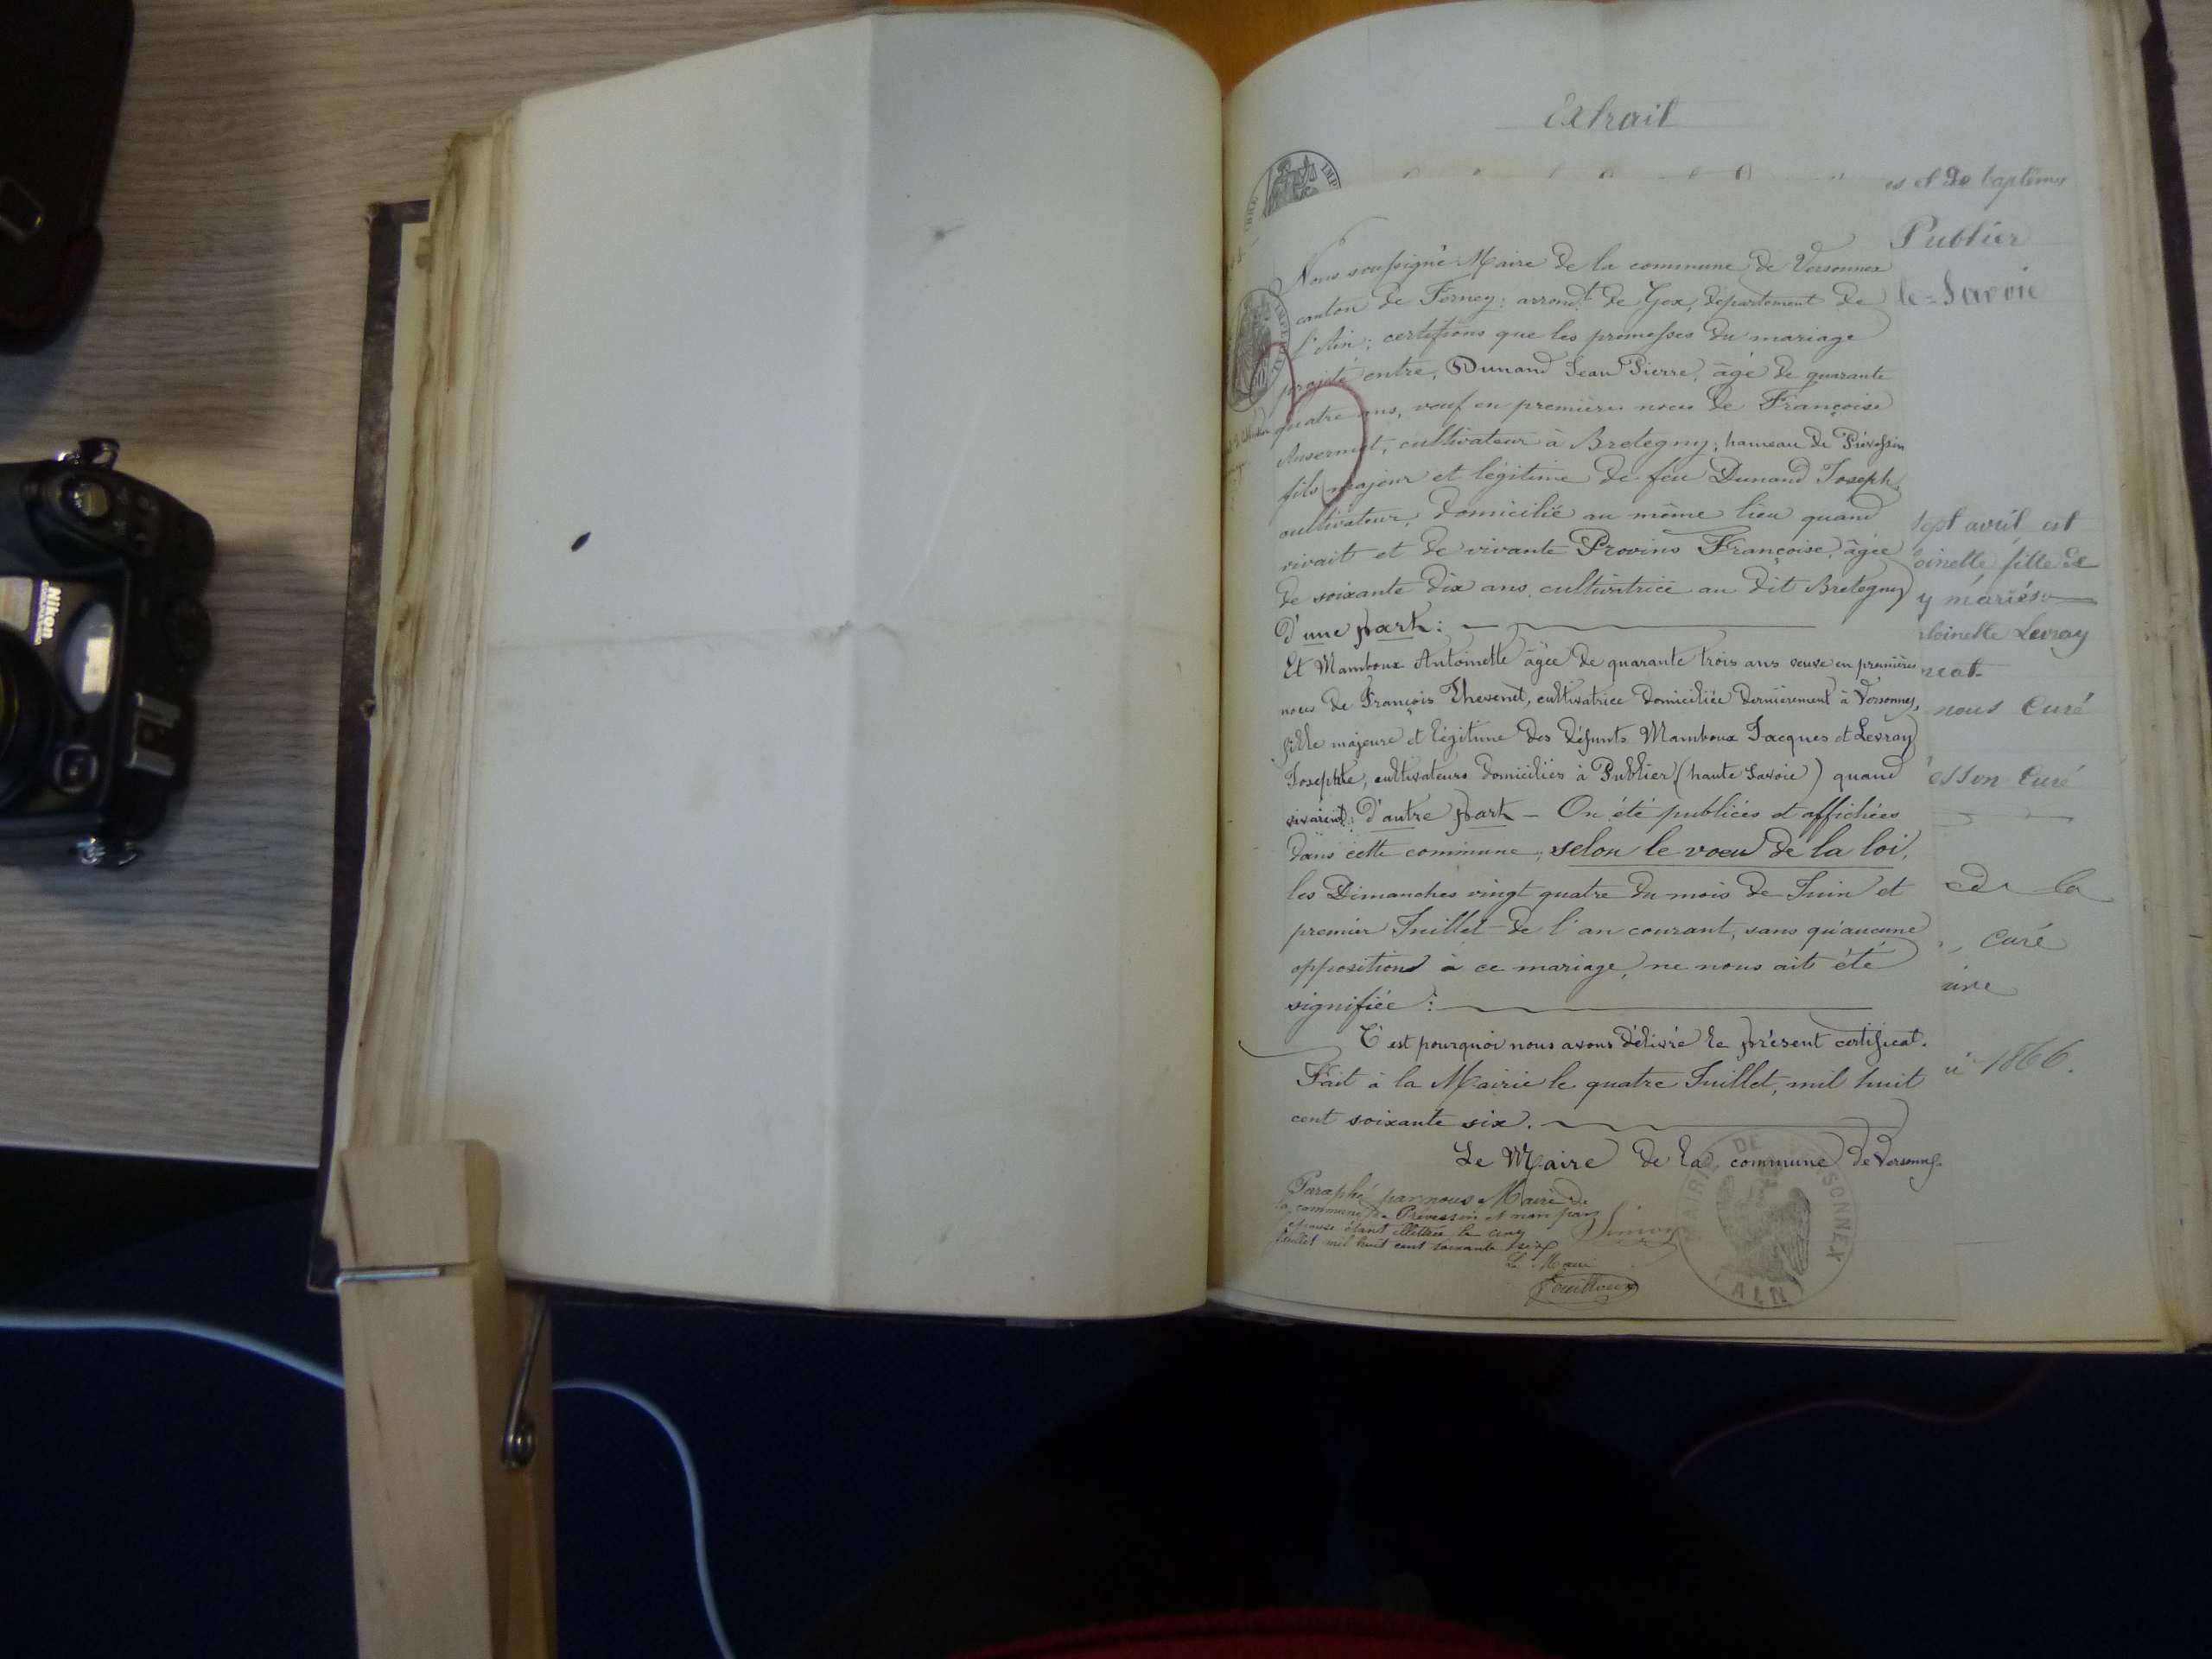 Extrait
es et de baptêmes
Publier
le-Savoie
Nous soussigné Maire de la commune de Versonnex
canton de Ferney: arrondt. de Gex, département de
l'Ain; certifions que les promesses du mariage
projeté entre, Dunand Jean Pierre, âgé de quarante
quatre ans, veuf en premières noces de Françoise
Ansermet, cultivateur à Bretegny; hameau de Prévessin
fils majeur et légitime de feu Dunand Joseph,
cultivateur, domicilié au même lieu quand
vivait et de vivante Provins Françoise, âgée
de soixante dix ans, cultivatrice au dit Bretegny
d'une part:
Et Mamboux Antoinette âgée de quarante trois ans veuve en premières
noces de François Thevenet, cultivatrice domiciliée dernièrement à Versonnex,
fille majeure et légitime des défunts Mamboux Jacques et Levray
Josephte, cultivateurs domiciliés à Publier (haute Savoie) quand
vivaient: d'autre part - On été publiées et affichées
dans cette commune, selon le voeu de la loi,
les Dimanches vingt quatre du mois de Juin et
premier Juillet de l'an courant, sans qu'aucune
opposition à ce mariage, ne nous ait été
signifiée:
C'est pourquoi nous avons délivré le présent certificat.
Fait à la Mairie le quatre Juillet, mil huit
cent soixante six.
Le Maire de la commune de Versonnex
Paraphé par nous Maire de
la commune de Prévessin et non par
épouse étant illettrée le cinq
Juillet mil huit cent soixante six
Le Maire
MAIRIE DE VERSONNEX
(AIN)
sept avril est
oinette fille de
y mariés
toinette Levray
nous Curé
esson Curé
de la
curé
1866.
Nikon